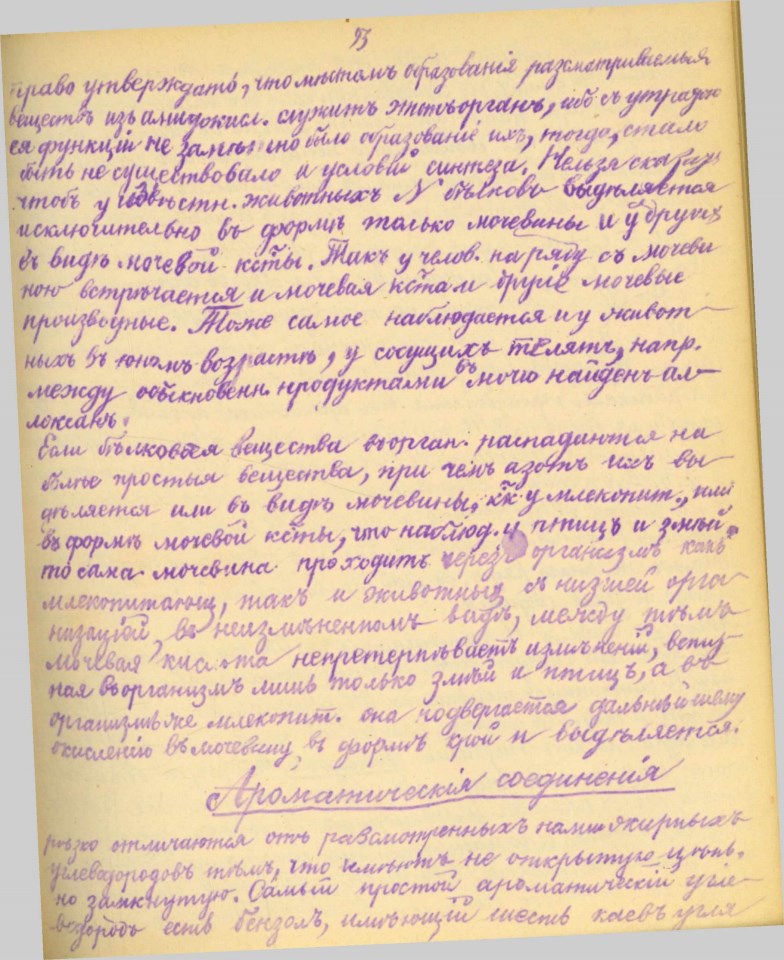 93
право утверждать, что местомъ образованія разсматриваемыя
веществъ изъ амидокисл. служитъ этотъ органъ, ибо съ утратою
ея функцій не замѣчено было образованіе ихъ, тогда, стало
быть не существовало и условій синтеза. Нельзя сказать,
чтобъ у извѣстн. животныхъ N бѣлковъ выдѣляется
исключительно въ формѣ только мочевины и у другихъ
въ видѣ мочевой к-ты. Такъ у челов. наряду съ мочеви
ною встрѣчается и мочевая к-та и другіе мочевые
производные. Тоже самое наблюдается и у живот-
ныхъ въ юномъ возрастѣ, у сосущихъ телятъ, напр.
между обыкновенн. продуктами въ мочѣ найденъ ал-
локсанъ.
Если бѣлковыя вещества въ орган. распадаются на
болѣе простыя вещества, при чемъ азотъ ихъ вы-
дѣляется или въ видѣ мочевины, к-к у млекопит., или
въ формѣ мочевой к-ты, что наблюд. у птицъ и змѣй
то сама мочевина проходитъ черезъ организмъ какъ
млекопитающ, такъ и животныхъ съ низшей орга-
низаціей, въ неизмѣненномъ видѣ, между тѣмъ
мочевая кислота непретерпѣваетъ измѣненій, вступ-
ная въ организмъ лишь только змѣй и птицъ, а въ
организмѣ же млекопит. она подвергается дальнѣйшему
окисленію въ мочевину, въ формѣ крой и выдѣляется.
Ароматическія соединенія
рѣзко отличаются отъ разсмотренныхъ нами жирныхъ
углеводородовъ тѣмъ, что имѣютъ не открытую цѣпь,
но замкнутую. Самый простой ароматическій угле-
водородъ есть бензолъ, имѣющій шесть паевъ угля